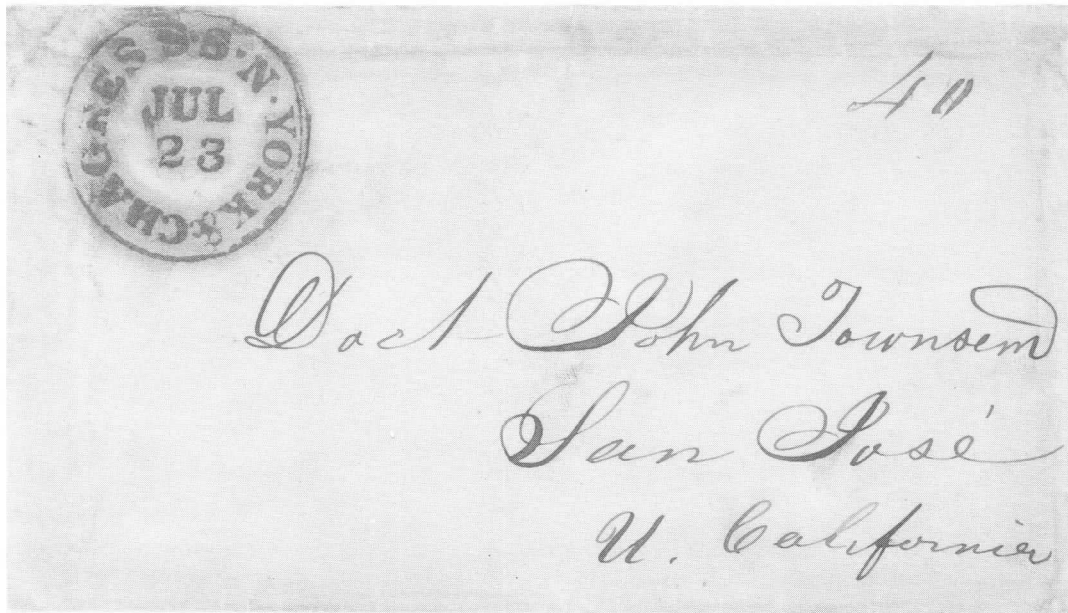 CHAGRES S.S. N. YORK &
JUL
23
40
Doct John Townsend
San José
U. California